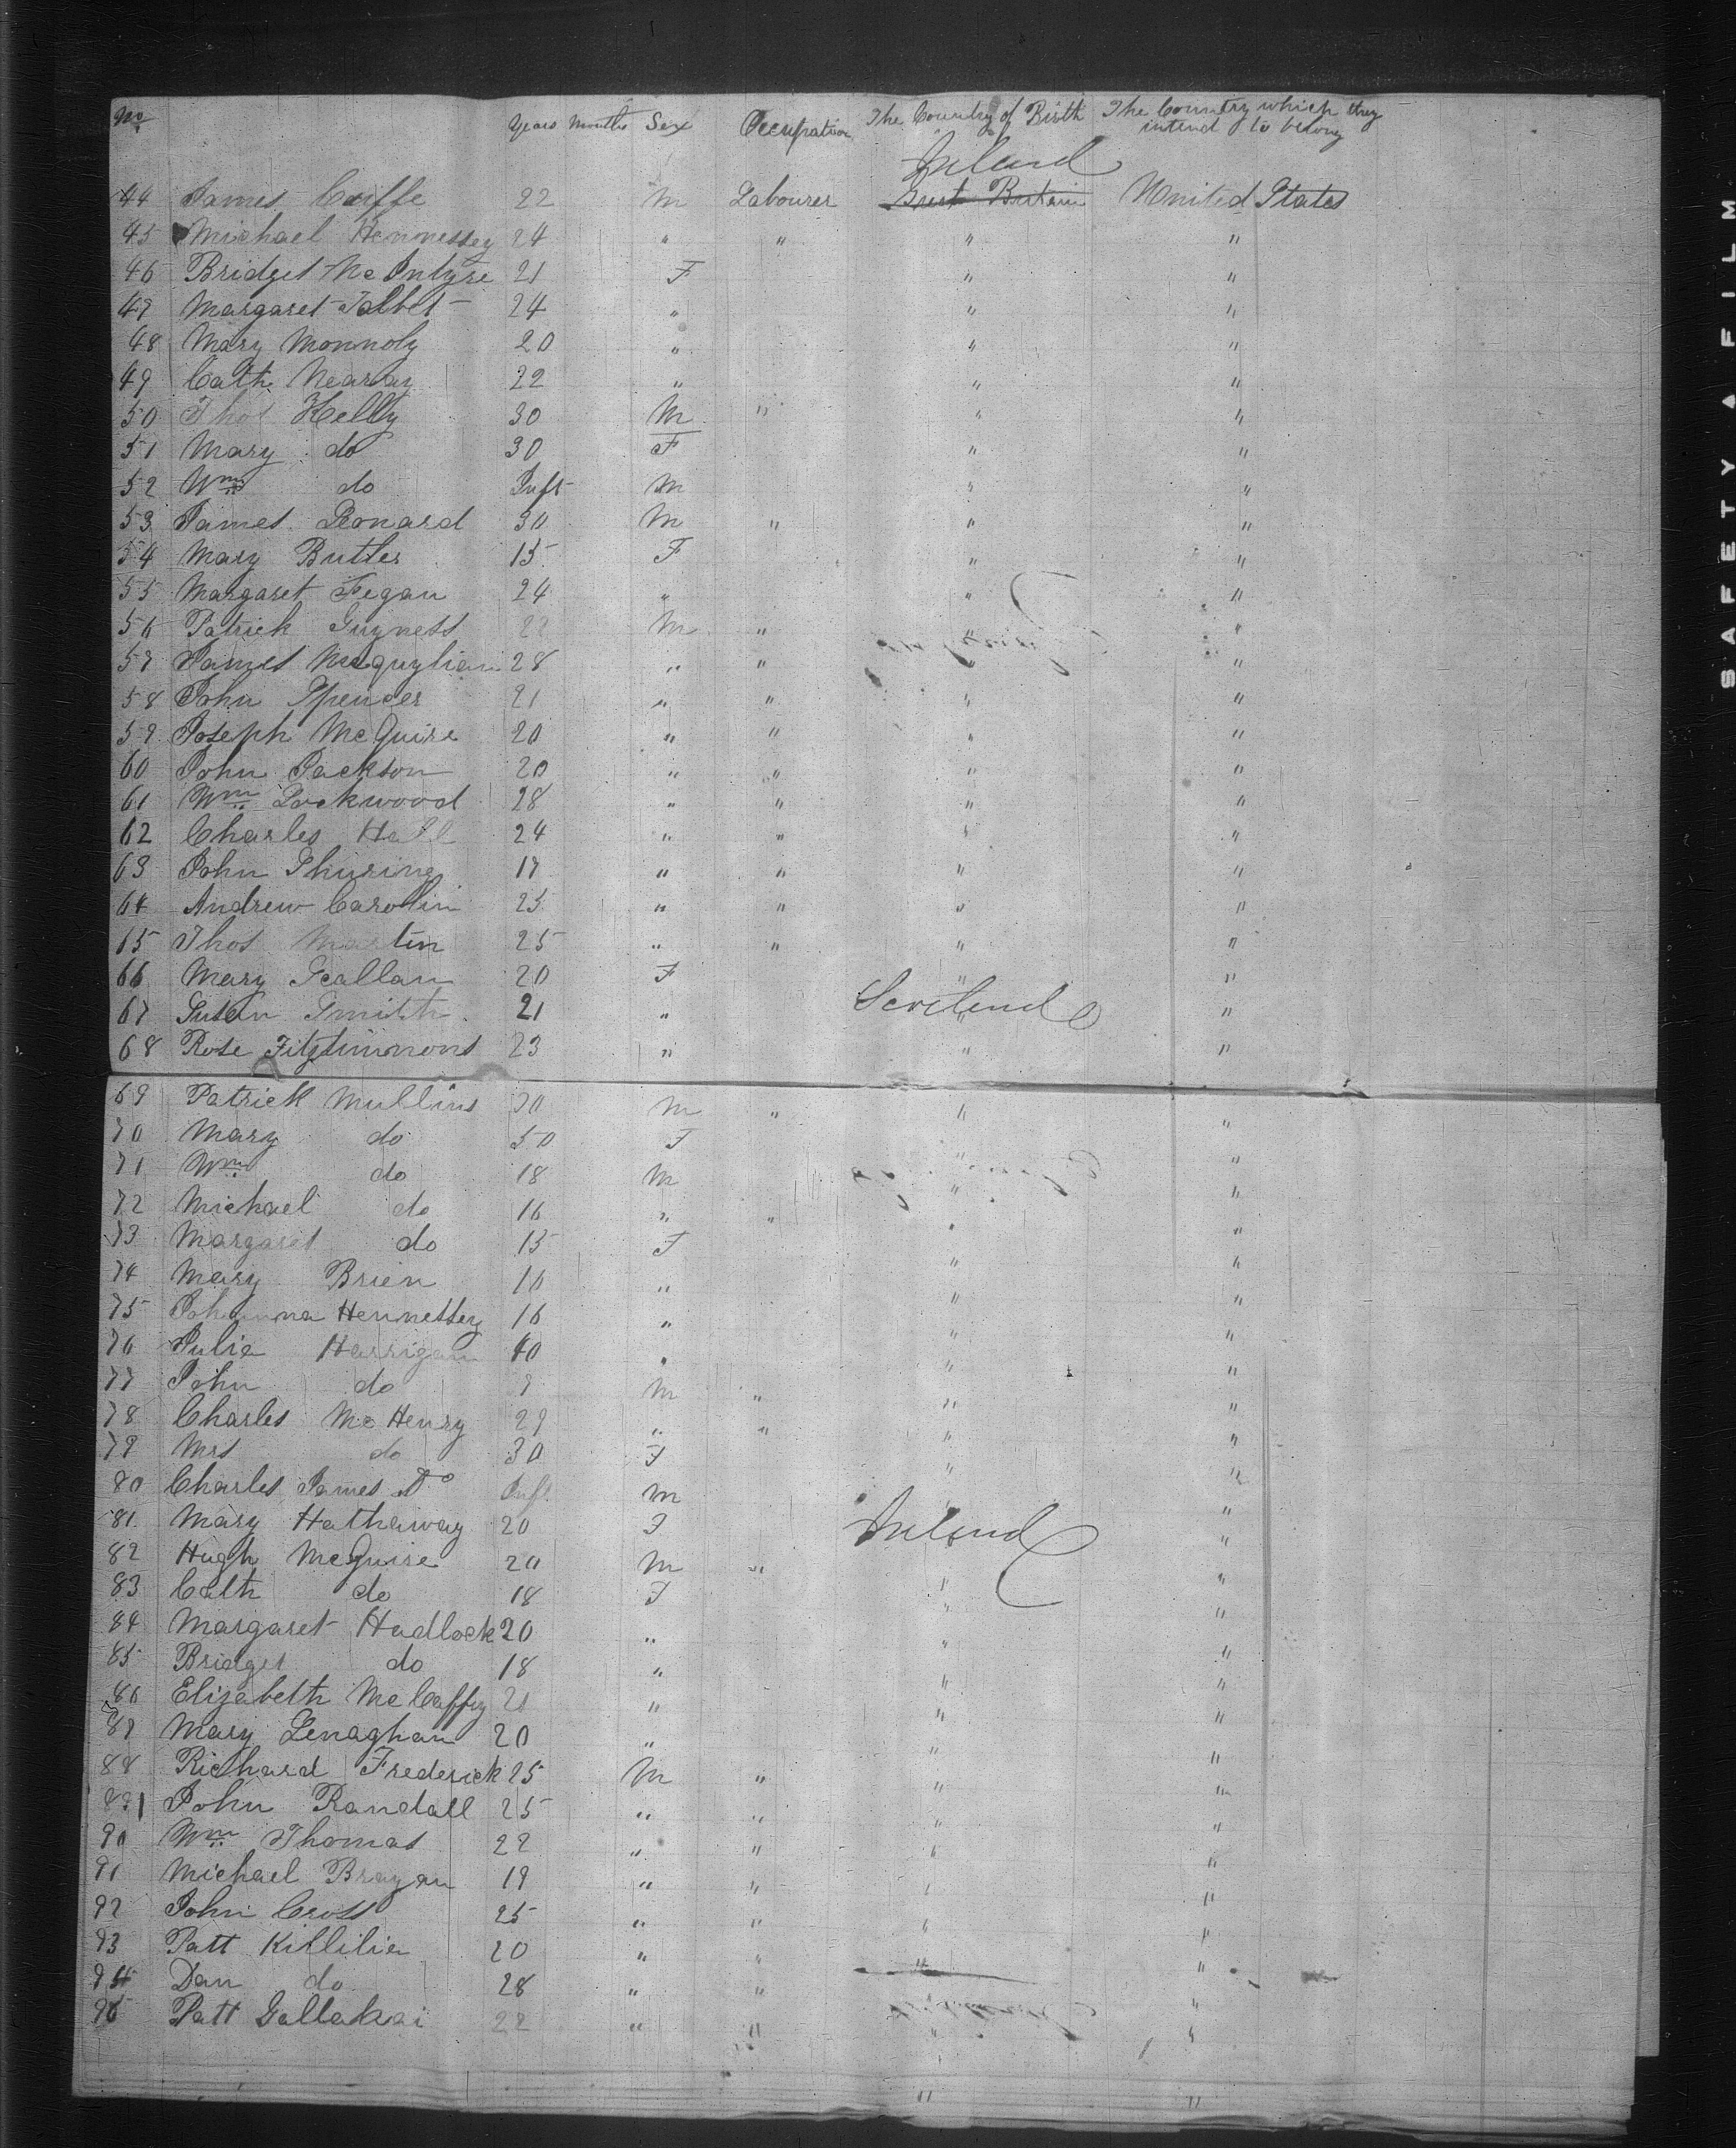 No Years Months Sex Occupation The Country of Birth The Country which they intend to belong
Ireland
44 James Cuffe 22 M Labourer Great Britain United States
45 Michael Hennessey 24 " " " "
46 Bridget McIntyre 21 F " "
47 Margaret Talbot 24 " " "
48 Mary Monnoly 20 " " "
49 Cath Nearay 22 " " "
50 Thos Kelly 30 M " " "
51 Mary do 30 F " "
52 Wm do Inft M " "
53 James Leonard 30 M " " "
54 Mary Butler 15 F " "
55 Margaret Fegan 24 " " "
56 Patrick Guyness 22 M " " "
57 James 28 " " " "
58 John Spencer 21 " " " "
59 Joseph McGuire 20 " " " "
60 John Jackson 20 " " " "
61 Wm Lockwood 28 " " " "
62 Charles Hall 24 " " " "
63 John 17 " " " "
64 Andrew Carollin 25 " " " "
65 Thos Martin 25 " " " "
66 Mary Geallan 20 F " "
67 Susan Smith 21 " Scotland "
68 Rose Fitzsimmons 23 " " "
69 Patrick Mullins 30 M " " "
70 Mary do 50 F " "
71 Wm do 18 M " "
72 Michael do 16 " " " "
73 Margaret do 15 F " "
74 Mary Brien 16 " " "
75 Johanna Hennessey 16 " " "
76 Julia Harrigan 40 " " "
77 John do 9 M " " "
78 Charles McHenry 29 " " " "
79 Mrs do 30 F " "
80 Charles James Do Inft M " "
81 Mary Hathaway 20 F Ireland "
82 Hugh McGuire 20 M " " "
83 Cath do 18 F " "
84 Margaret Hadlock 20 " " "
85 Bridget do 18 " " "
86 Elizabeth McCaffry 21 " " "
87 Mary Lenaghan 20 " " "
88 Richard Frederick 25 M " " "
89 John Randall 25 " " " "
90 Wm Thomas 22 " " " "
91 Michael Brayan 19 " " " "
92 John Cross 25 " " " "
93 Patt Killilia 20 " " " "
94 Dan do 28 " " " "
95 Patt 22 " " " "
" "
SAFETY A FILM